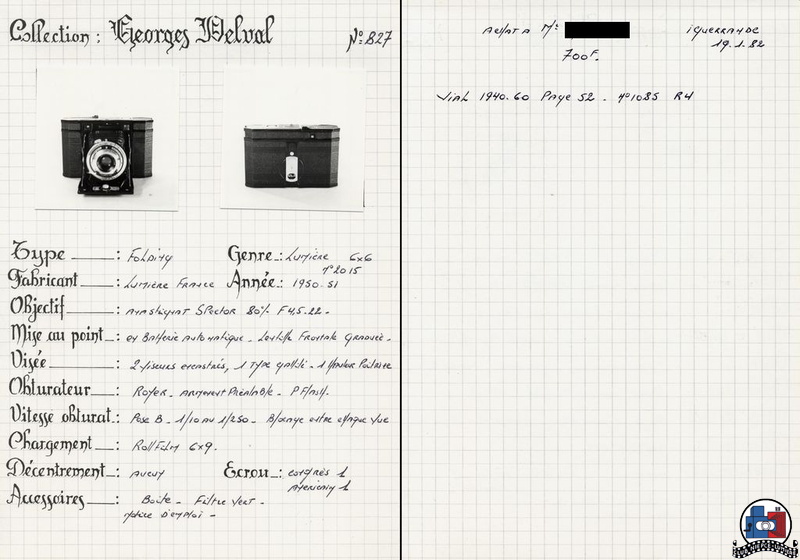 Collection : Georges Delval
No: 827
Type : Folding
Genre : Lumière 6x6
n° 2015
Fabricant : Lumière France
Année : 1950.51
Objectif : Anastigmat Spector 80% F4,5.22.
Mise au point : en Batterie automatique - Lentille Frontale Graduée.
Visée : 2 Viseurs encastrés, 1 Type galilée - 1 Hauteur Poitrine
Obturateur : Royer - Armement Préalable - P Flash.
Vitesse obturat. : Pose B - 1/10 au 1/250 - Blocage entre chaque vue
Chargement : Rollfilm 6x9.
Décentrement : aucun
Ecrou : congrès 1
Americain 1
Accessoires : Boîte - Filtre Vert -
Notice D'emploi -
Achat a Mr:
iguerande
19.1.82
700F.
Vial 1940.60 Page 52 - n°1085 R4